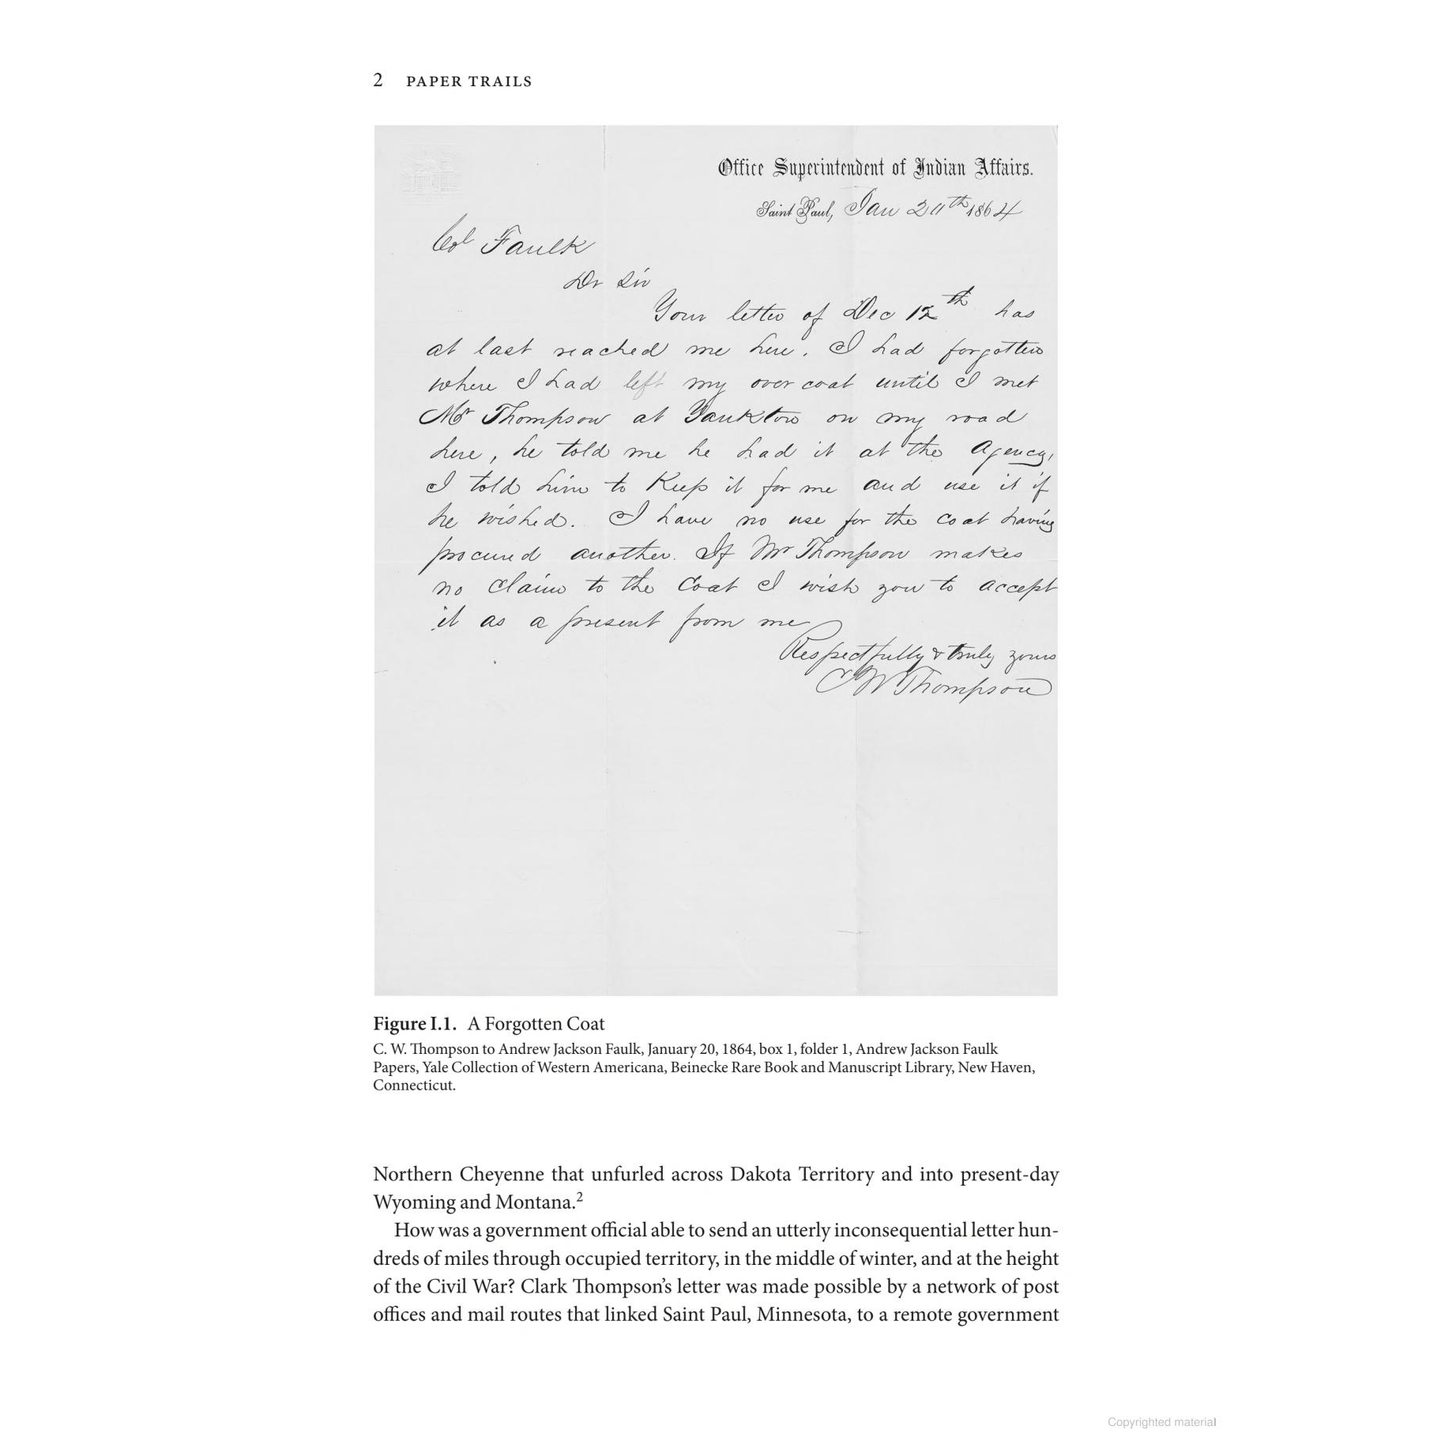 2 PAPER TRAILS
Office Superintendent of Indian Affairs.
Saint Paul, Jan 20th 1864
Col Faulk
Dr Sir
Your letter of Dec 12th has
at last reached me here. I had forgotten
where I had left my over coat until I met
Mr Thompson at Yankton on my road
here, he told me he had it at the Agency,
I told him to Keep it for me and use it if
he wished. I have no use for the coat having
procured another. If Mr Thompson makes
no claim to the Coat I wish you to accept
it as a present from me
Respectfully & truly yours
C W Thompson
Figure I.1. A Forgotten Coat
C. W. Thompson to Andrew Jackson Faulk, January 20, 1864, box 1, folder 1, Andrew Jackson Faulk
Papers, Yale Collection of Western Americana, Beinecke Rare Book and Manuscript Library, New Haven,
Connecticut.
Northern Cheyenne that unfurled across Dakota Territory and into present-day
Wyoming and Montana.2
How was a government official able to send an utterly inconsequential letter hun-
dreds of miles through occupied territory, in the middle of winter, and at the height
of the Civil War? Clark Thompson's letter was made possible by a network of post
offices and mail routes that linked Saint Paul, Minnesota, to a remote government
Copyrighted material